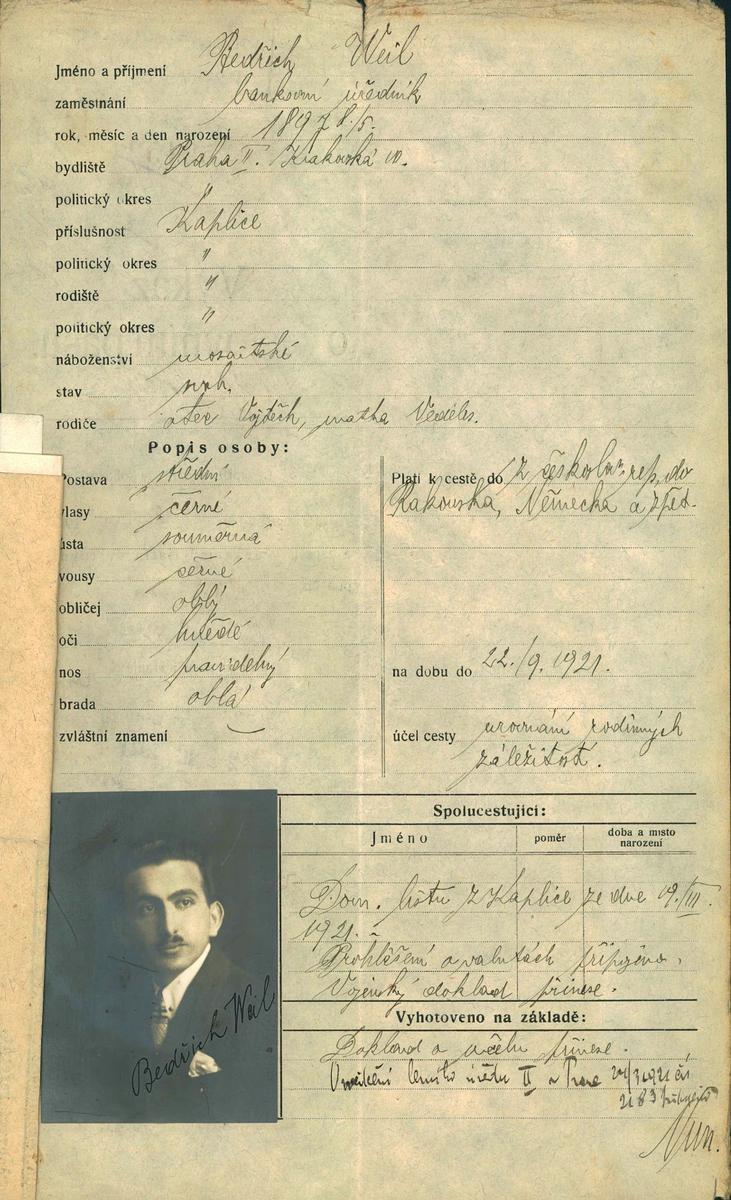 Jméno a příjmení Bedřich Weil
zaměstnání bankovní úředník
rok, měsíc a den narození 1897 8./5.
bydliště Praha II. Krakovská 10.
politický okres "
příslušnost Kaplice
politický okres "
rodiště "
politický okres "
náboženství mosaitské
stav svob.
rodiče otec Vojtěch, matka
Popis osoby:
Postava střední
vlasy černé
ústa souměrná
vousy černé
obličej oblý
oči hnědé
nos pravidelný
brada oblá
zvláštní znamení —
Platí k cestě do z českoslov. rep. do
Rakouska, Německa a zpět.
na dobu do 22./9. 1921.
účel cesty urovnání rodinných
záležitostí.
Bedřich Weil
Spolucestující:
Jméno poměr doba a místo narození
Dom. listu z Kaplice ze dne 19./III.
1921.
Prohlášení o valutách připojeno.
Vojenský doklad přinese.
Vyhotoveno na základě:
Doklad o účelu přinese.
úřadu II v Praze čís
2183